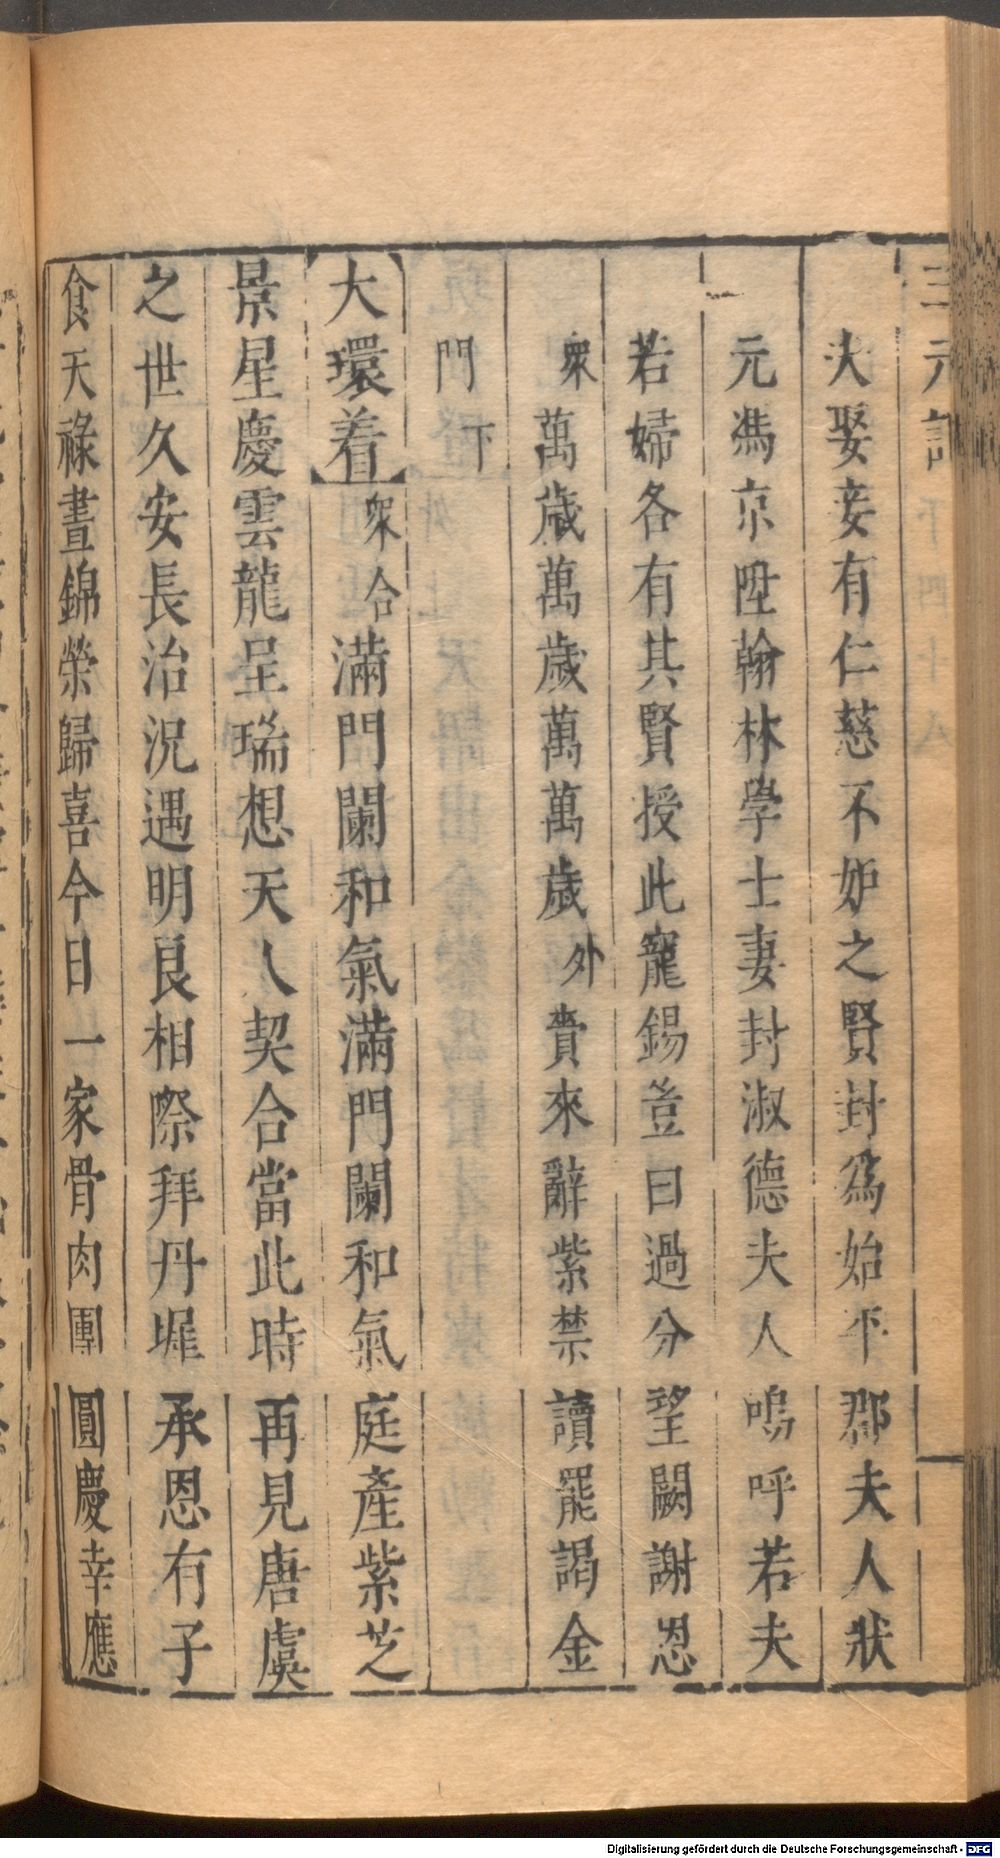 三元記
夫娶妾有仁慈不妒之賢封爲始平郡夫人狀
元馮京陞翰林學士妻封淑德夫人嗚呼若夫
若婦各有其賢授此寵錫豈曰過分望闕謝恩
衆萬歲萬歲萬萬歲外賫來辭紫禁讀罷謁金
門下
大環着衆合滿門闌和氣滿門闌和氣庭產紫芝
景星慶雲龍呈瑞想天人契合當此時再見唐虞
之世久安長治況遇明良相際拜丹墀承恩有子
食天祿晝錦榮歸喜今日一家骨肉團圓慶幸應
Digitalisierung gefördert durch die Deutsche Forschungsgemeinschaft - DFG